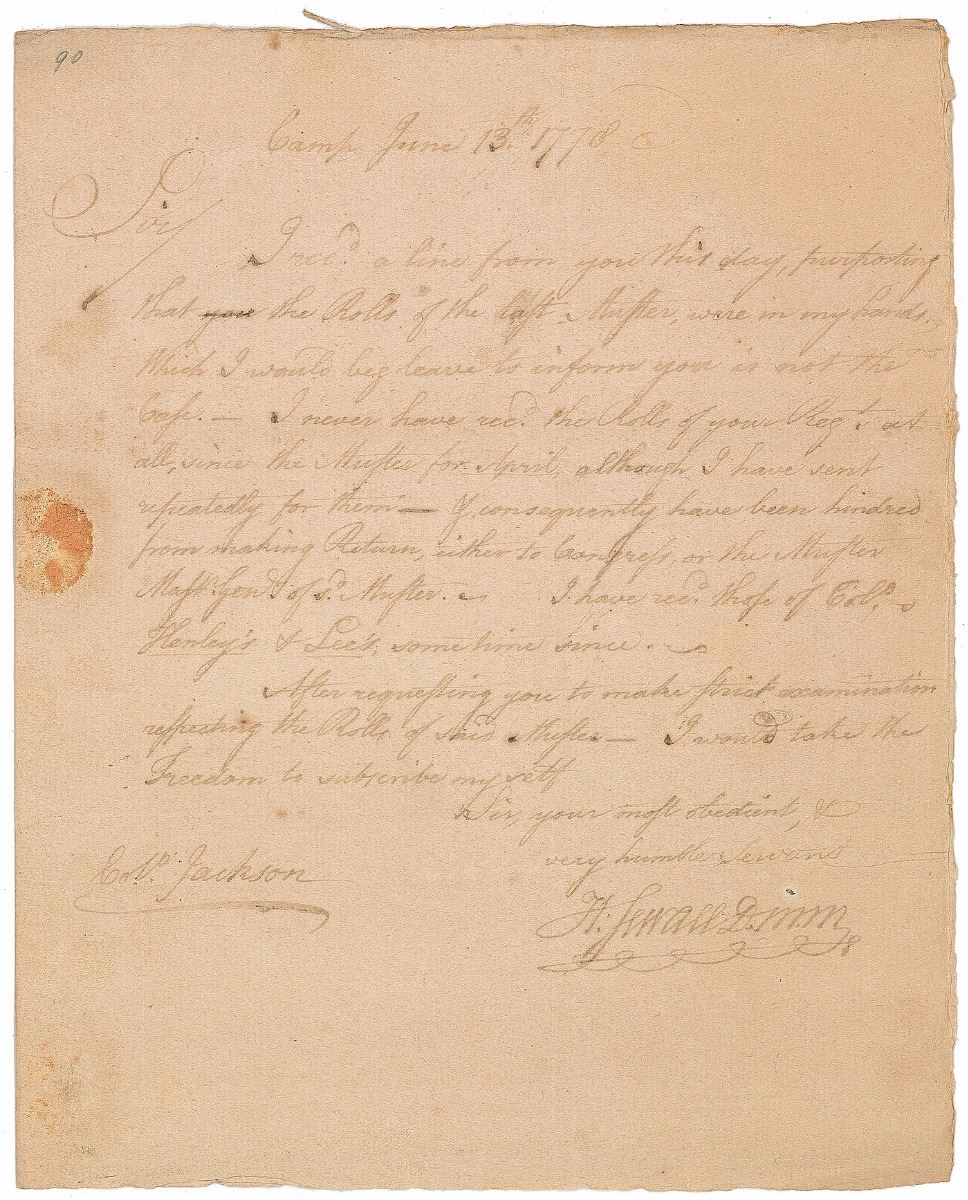 90
Camp June 13th. 1778
Sir/
I recd. a line from you this day, purporting
that you the Rolls of the last Muster, were in my hands,
Which I would beg leave to inform you is not the
Case. — I never have recd. the Rolls of your Regt. at
all, since the Muster for April, although I have sent
repeatedly for them — & consequently have been hindred
from making Return, either to Congress, or the Muster
Mastr. Genl. of sd. Muster. — I have recd. those of Colo.
Henley's & Lee's, sometime since. —
After requesting you to make strict examination
respecting the Rolls of said Muster — I would take the
Freedom to subscribe myself
Sir, your most obedient, &
very humble Servant
Colo. Jackson
H. Sewall D.M.M.